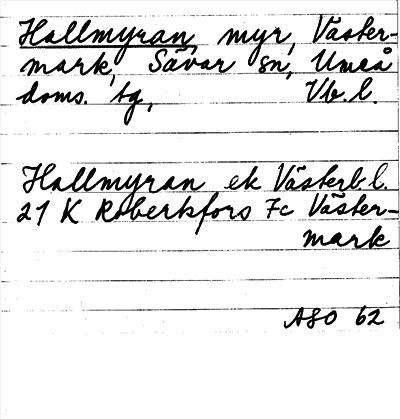 Hallmyran, myr, Väster-
mark, Sävar sn, Umeå
doms. tg, Vb.l.
Hallmyran ek Västerb.l.
21 K Robertsfors 7c Väster-
mark
ASO 62